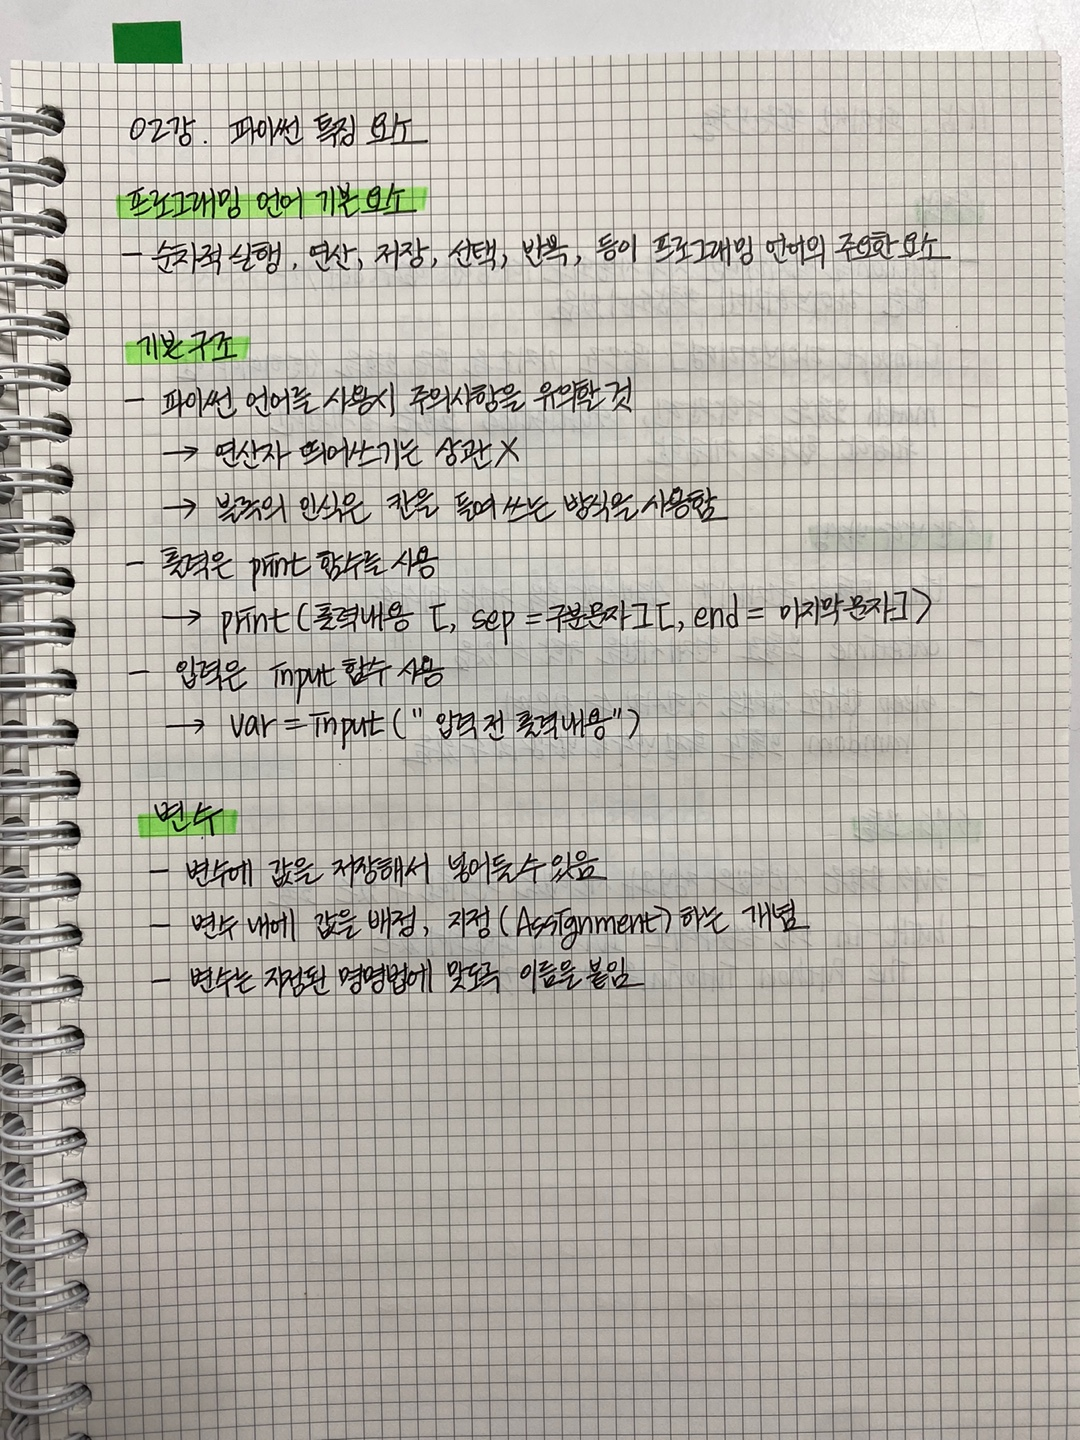 02강. 파이썬 특징 요소
프로그래밍 언어 기본 요소
- 순차적 실행, 연산, 저장, 선택, 반복, 등이 프로그래밍 언어의 주요한 요소
기본 구조
- 파이썬 언어를 사용시 주의사항을 유의할 것
→ 연산자 띄어쓰기는 상관 X
→ 블록의 인식은 칸을 들여 쓰는 방식을 사용함
- 출력은 print 함수를 사용
→ print(출력내용 [, sep = 구분문자][, end = 마지막문자])
- 입력은 Input 함수 사용
→ var = Input("입력 전 출력내용")
변수
- 변수에 값을 저장해서 넣어둘 수 있음
- 변수 내에 값을 배정, 지정(Assignment)하는 개념
- 변수는 지정된 명명법에 맞도록 이름을 붙임